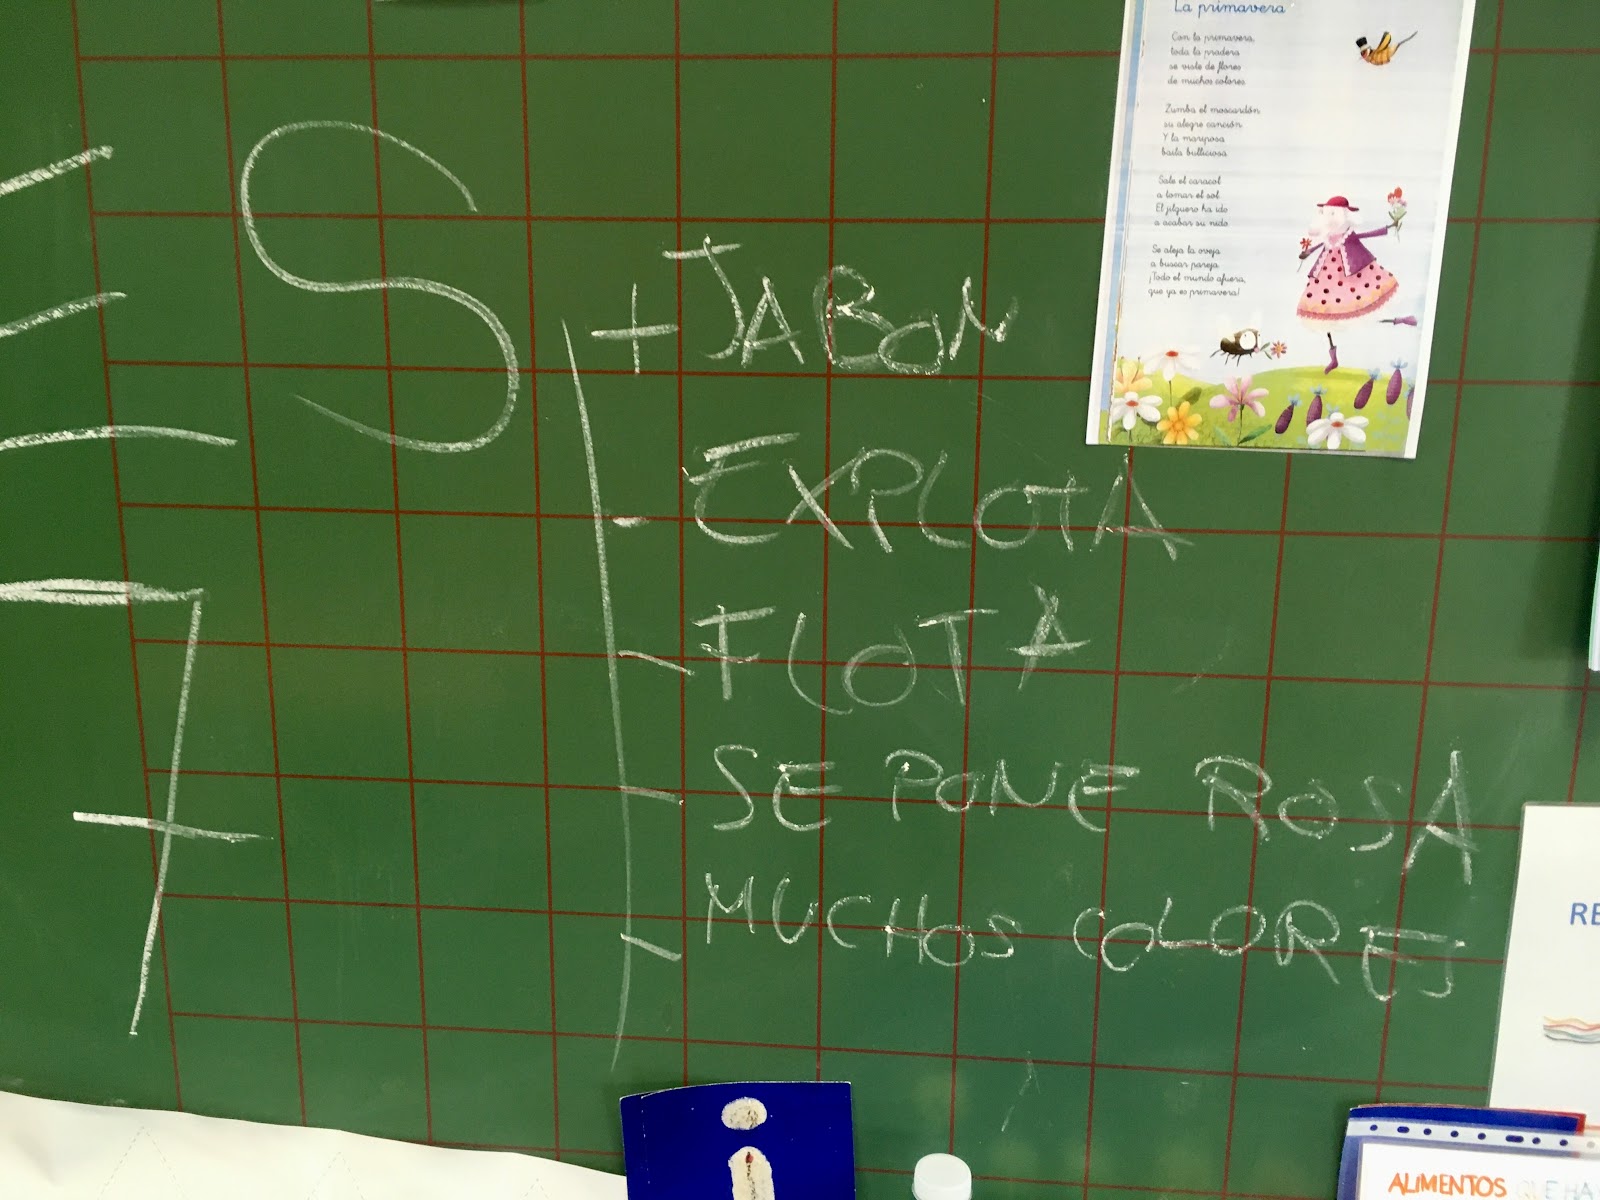 La primavera
Con la primavera,
toda la pradera
se viste de flores
de muchos colores.
Zumba el moscardón
su alegre canción.
Y la mariposa
baila bulliciosa.
Sale el caracol
a tomar el sol.
El jilguero ha ido
a acabar su nido.
Se aleja la oveja
a buscar pareja.
¡Todo el mundo afuera,
que ya es primavera!
ES
7
+ JABON
- EXPLOTA
- FLOTA
- SE PONE ROSA
- MUCHOS COLORES
RE
i
ALIMENTOS QUE HA